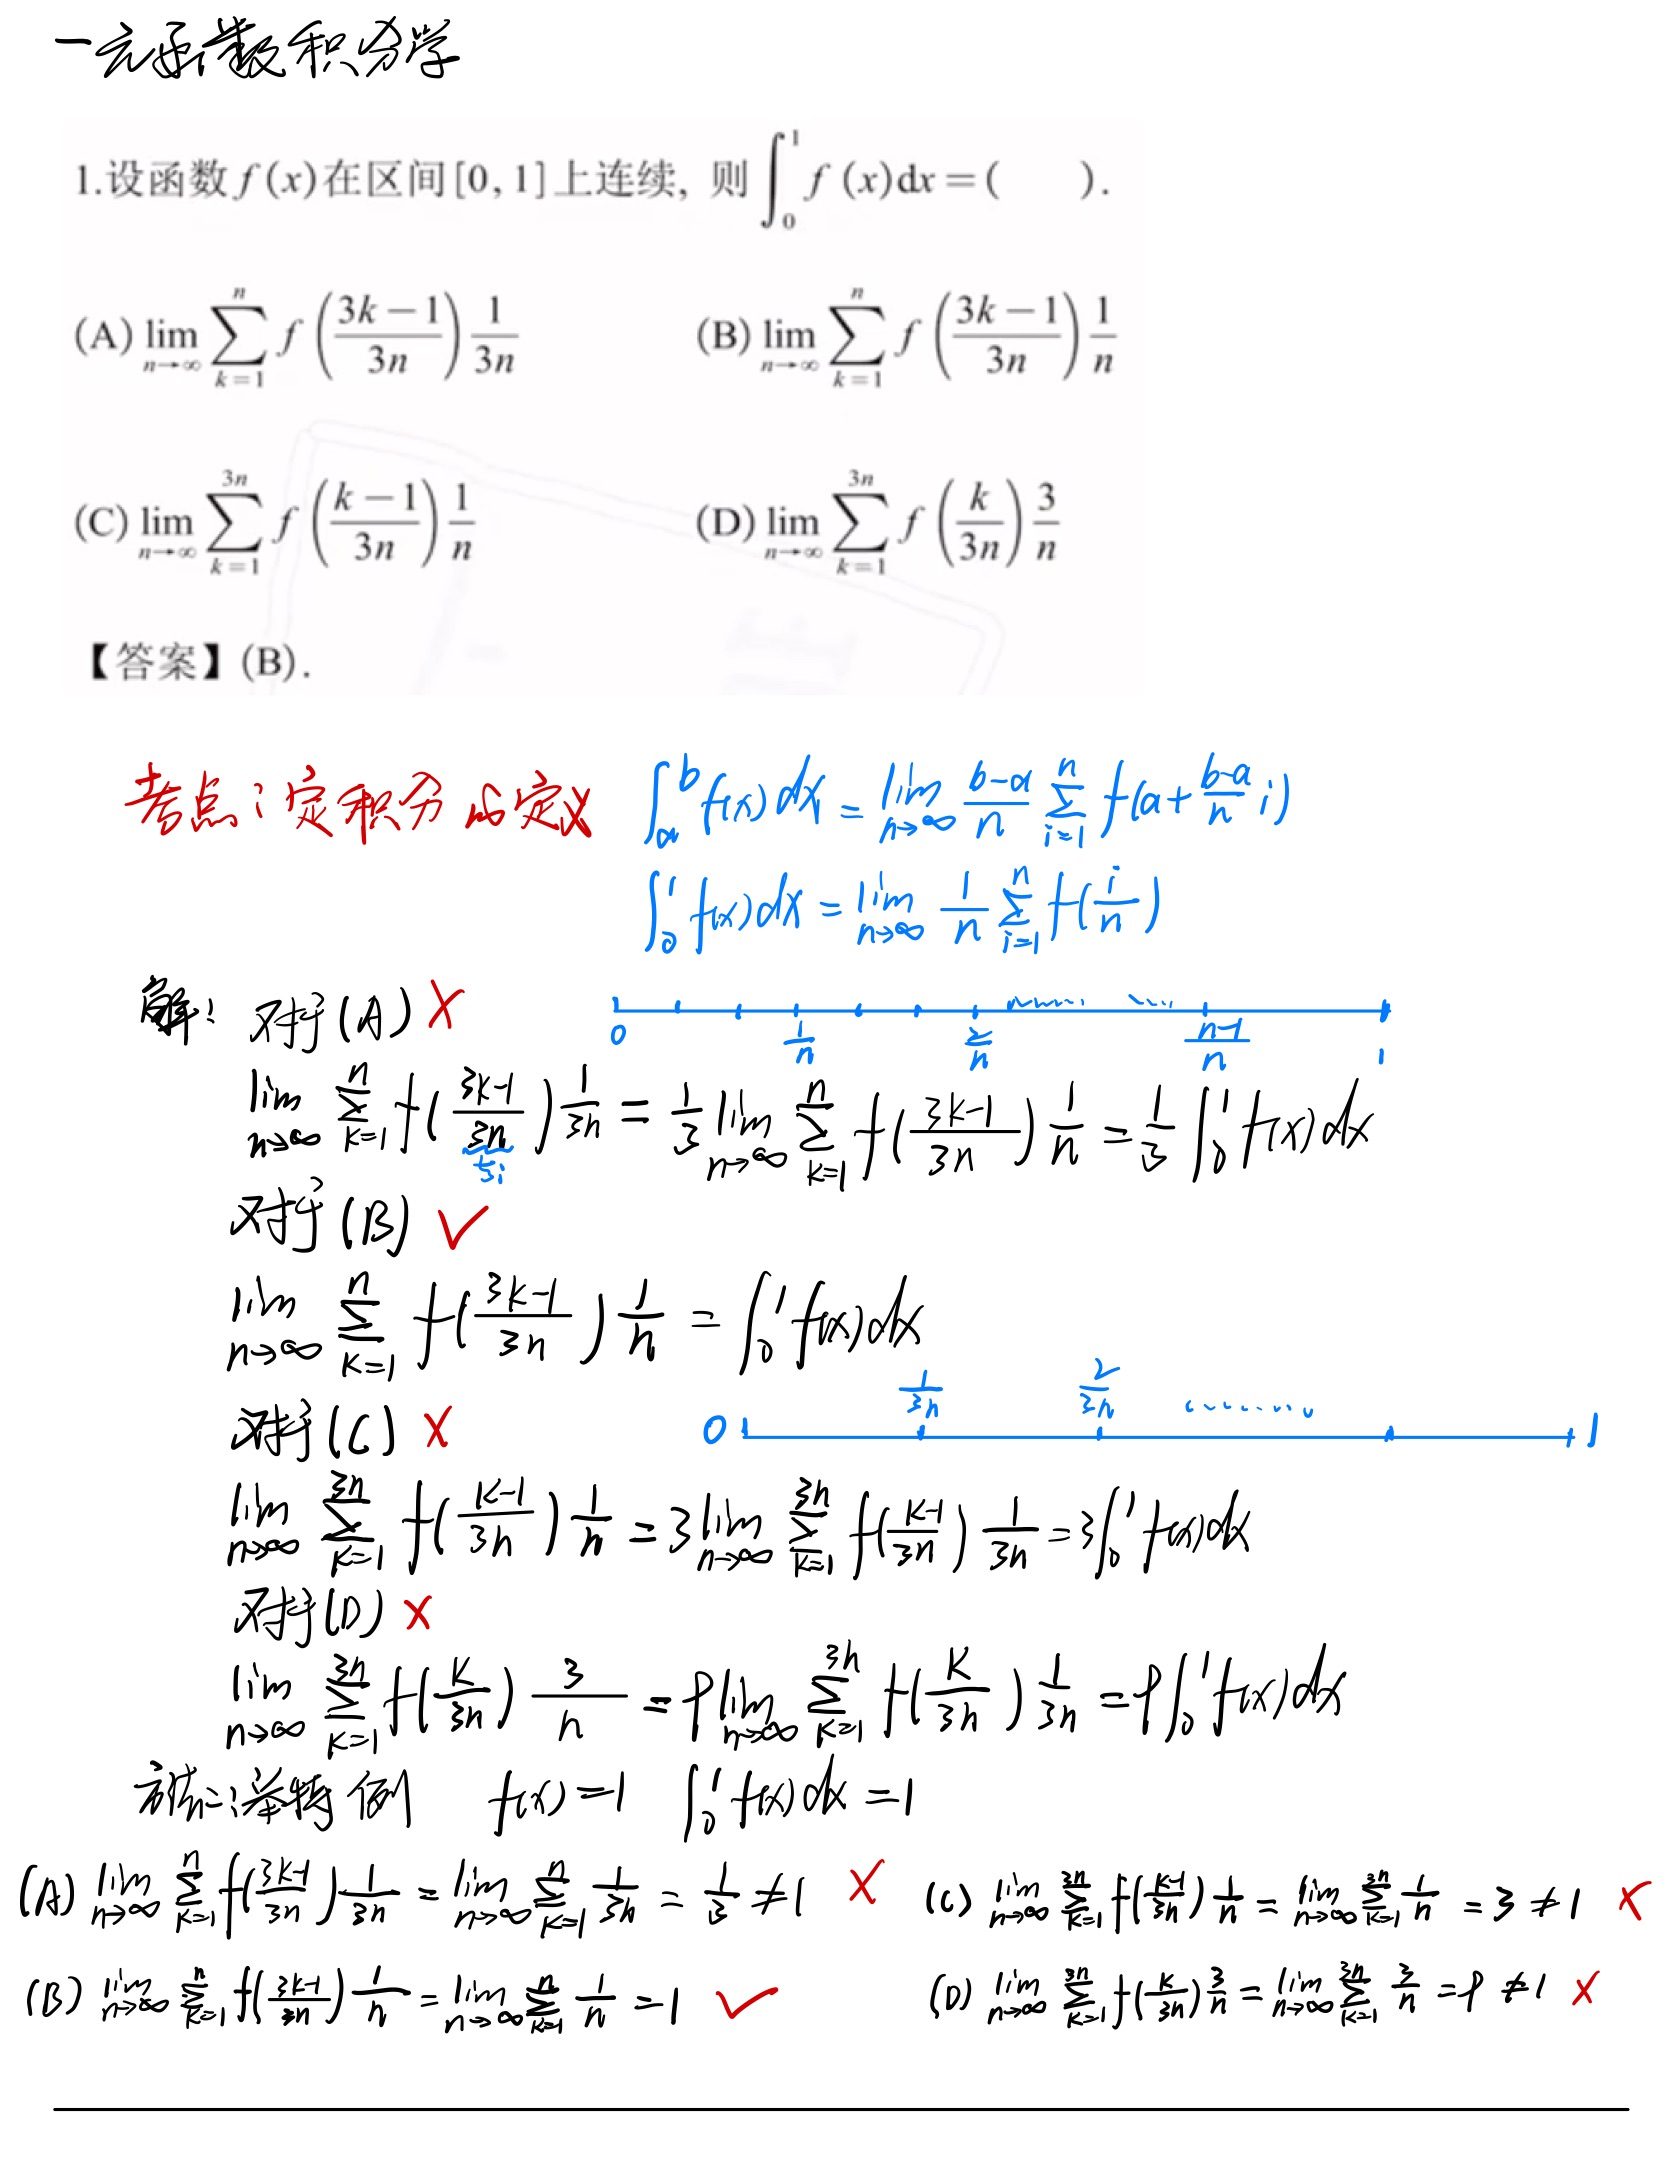 一元函数积分学
1.设函数f(x)在区间[0,1]上连续, 则∫₀¹ f(x)dx=(  ).
(A) lim_{n→∞} ∑_{k=1}^{n} f((3k-1)/(3n)) 1/(3n)  (B) lim_{n→∞} ∑_{k=1}^{n} f((3k-1)/(3n)) 1/n
(C) lim_{n→∞} ∑_{k=1}^{3n} f((k-1)/(3n)) 1/n  (D) lim_{n→∞} ∑_{k=1}^{3n} f(k/(3n)) 3/n
【答案】(B).
考点:定积分的定义 ∫_a^b f(x)dx = lim_{n→∞} (b-a)/n ∑_{i=1}^{n} f(a+(b-a)/n i)
∫₀¹ f(x)dx = lim_{n→∞} 1/n ∑_{i=1}^{n} f(i/n)
解: 对于(A) ✗
0 1/n 2/n (n-1)/n 1
lim_{n→∞} ∑_{k=1}^{n} f((3k-1)/(3n)) 1/(3n) = 1/3 lim_{n→∞} ∑_{k=1}^{n} f((3k-1)/(3n)) 1/n = 1/3 ∫₀¹ f(x)dx
对于(B) ✓
lim_{n→∞} ∑_{k=1}^{n} f((3k-1)/(3n)) 1/n = ∫₀¹ f(x)dx
对于(C) ✗
0 1/(3n) 2/(3n) ....... 1
lim_{n→∞} ∑_{k=1}^{3n} f((k-1)/(3n)) 1/n = 3 lim_{n→∞} ∑_{k=1}^{3n} f((k-1)/(3n)) 1/(3n) = 3∫₀¹ f(x)dx
对于(D) ✗
lim_{n→∞} ∑_{k=1}^{3n} f(k/(3n)) 3/n = 9 lim_{n→∞} ∑_{k=1}^{3n} f(k/(3n)) 1/(3n) = 9∫₀¹ f(x)dx
方法二:举特例 f(x)=1 ∫₀¹ f(x)dx=1
(A) lim_{n→∞} ∑_{k=1}^{n} f((3k-1)/(3n)) 1/(3n) = lim_{n→∞} ∑_{k=1}^{n} 1/(3n) = 1/3 ≠ 1 ✗ (C) lim_{n→∞} ∑_{k=1}^{3n} f((k-1)/(3n)) 1/n = lim_{n→∞} ∑_{k=1}^{3n} 1/n = 3 ≠ 1 ✗
(B) lim_{n→∞} ∑_{k=1}^{n} f((3k-1)/(3n)) 1/n = lim_{n→∞} ∑_{k=1}^{n} 1/n = 1 ✓ (D) lim_{n→∞} ∑_{k=1}^{3n} f(k/(3n)) 3/n = lim_{n→∞} ∑_{k=1}^{3n} 3/n = 9 ≠ 1 ✗